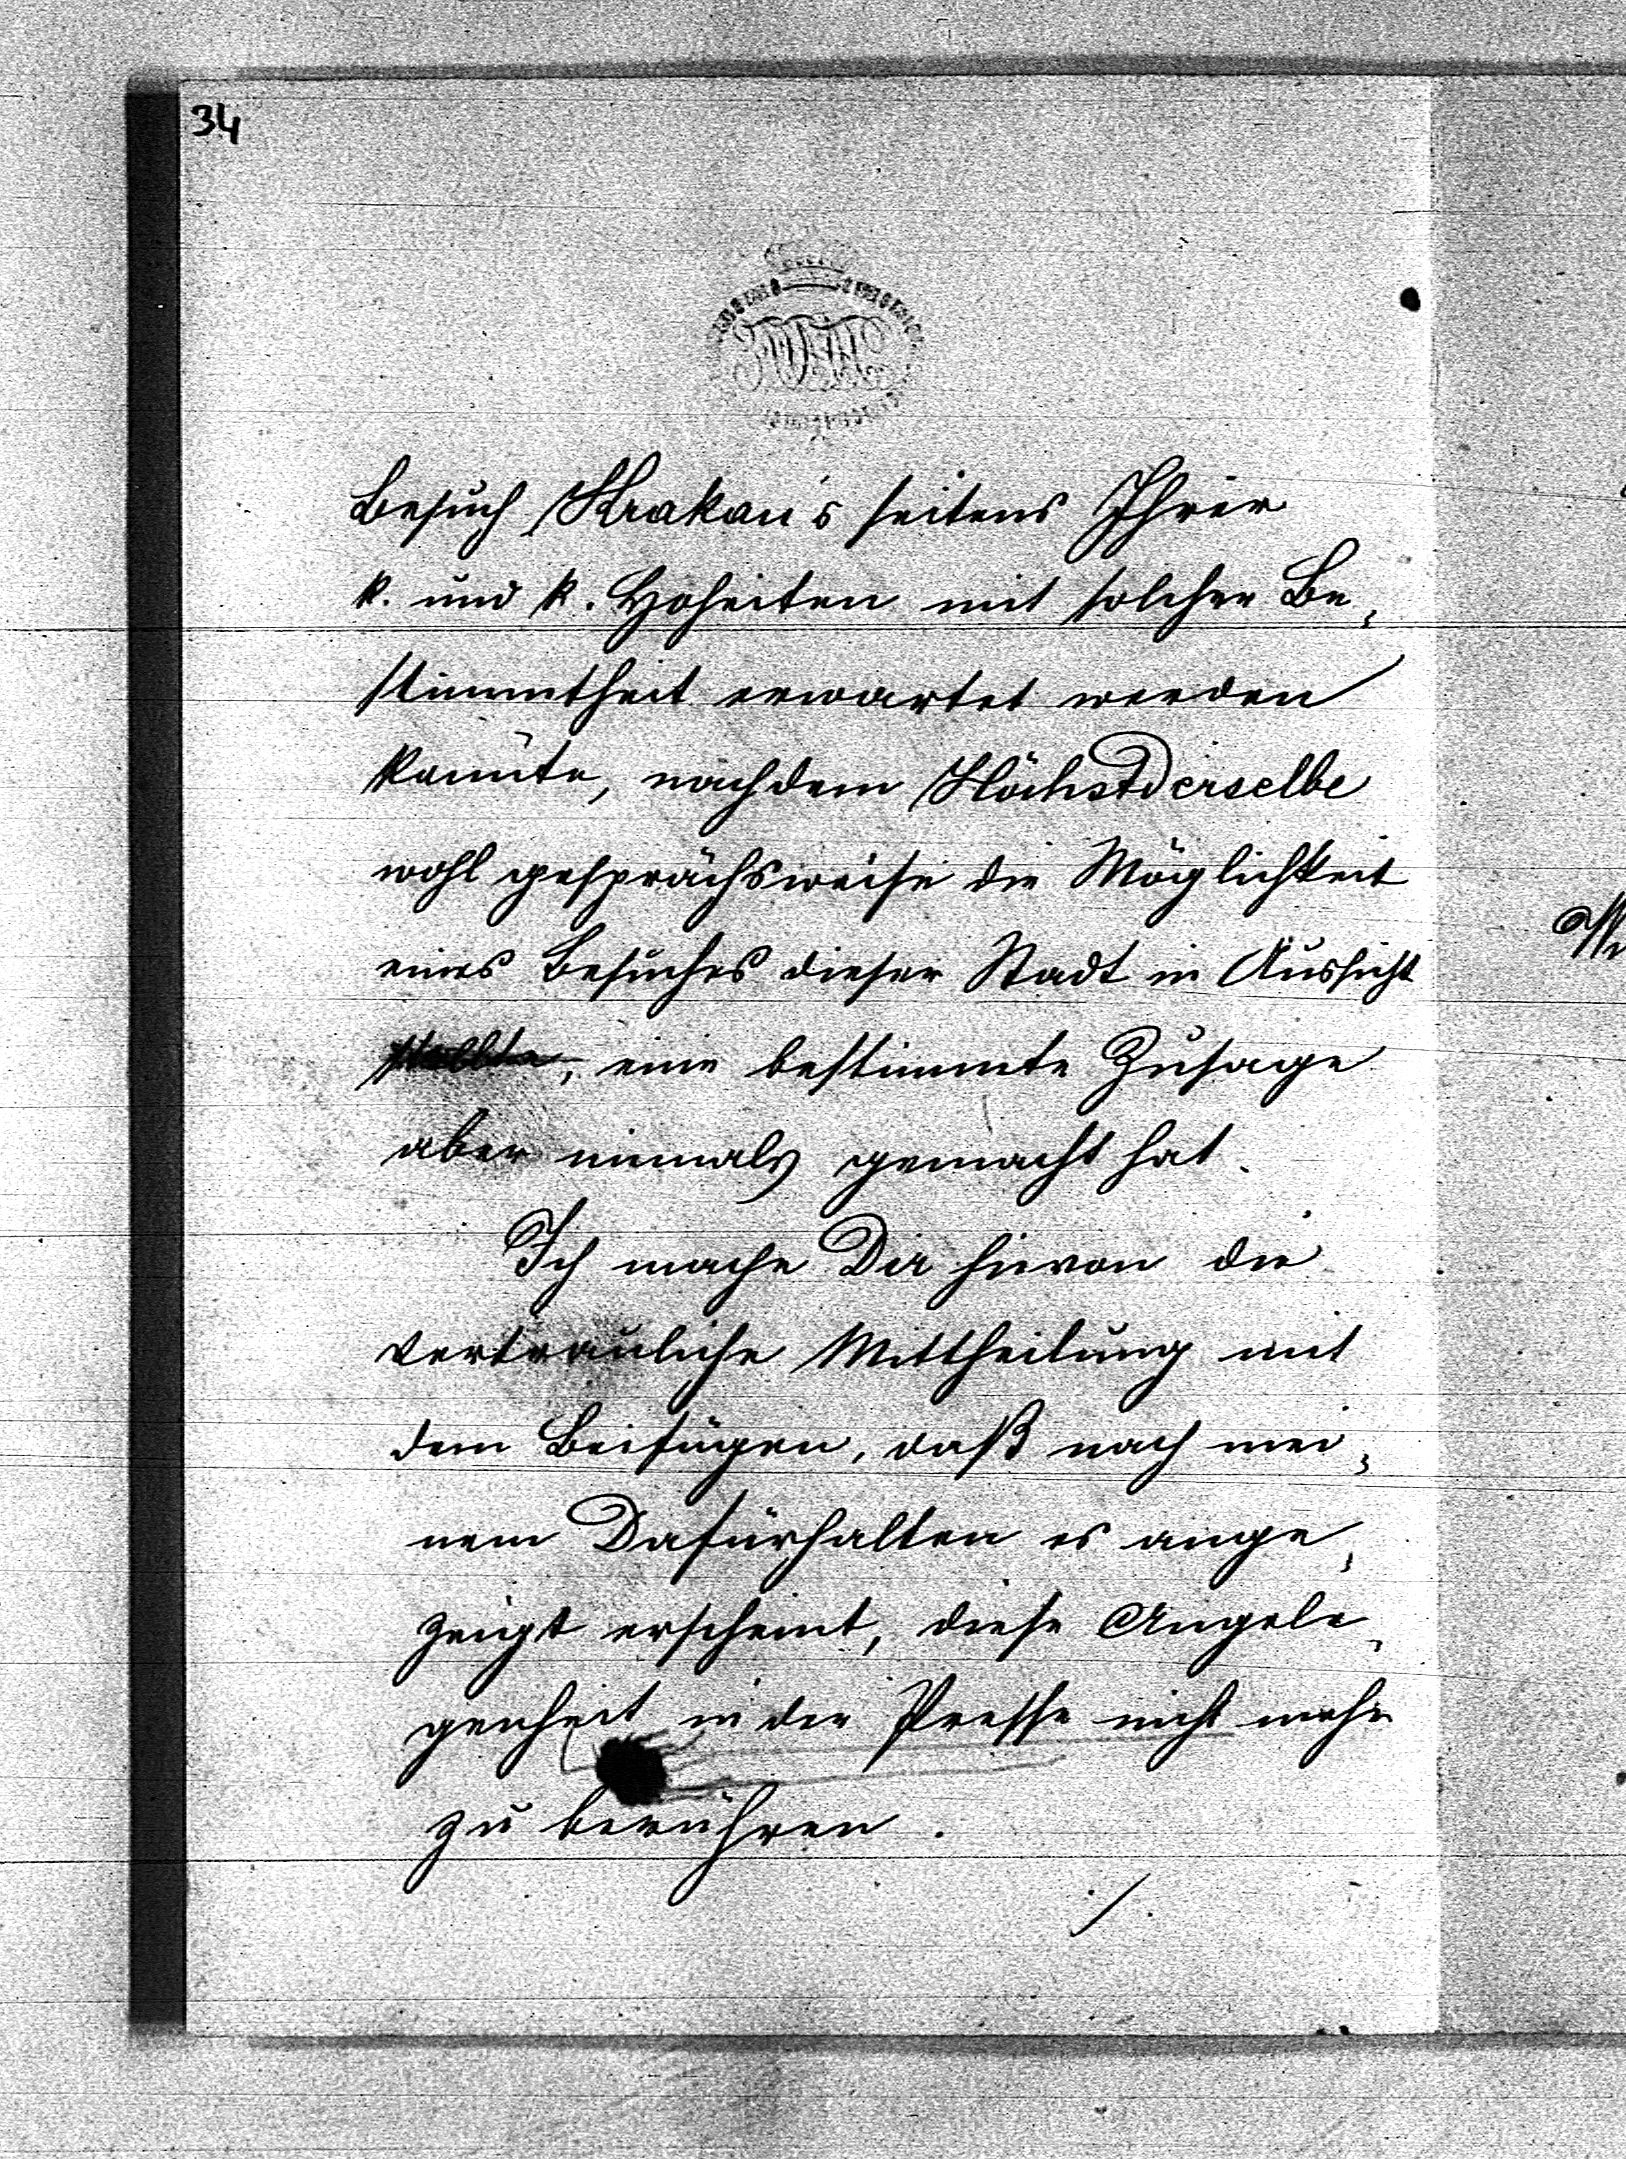 34
Besuch Krakau's seitens Ihrer
k. und k. Hoheiten mit solcher Be,
stimmtheit erwartet werden
konnte, nachdem Höchstderselbe
wohl gesprächsweise die Möglichkeit
eines Besuches dieser Stadt in Aussicht
stellte, eine bestimmte Zusage
aber niemals gemacht hat.
Ich mache Dir hievon die
vertrauliche Mittheilung mit
dem Beifügen, daß nach mei,
nem Dafürhalten es ange,
zeigt erscheint, diese Angele,
genheit in der Presse nicht mehr
zu berühren.
./.